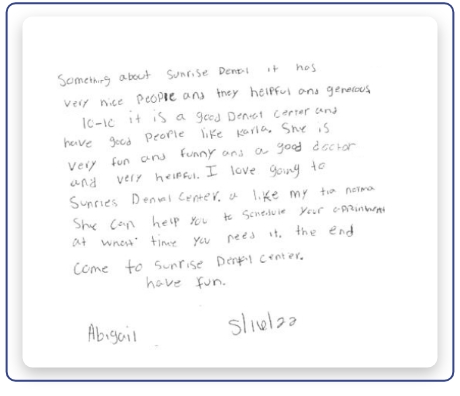 Something about Sunrise Dental it has
very nice people and they helpful and generous
10-10 it is a good Dental Center and
have good people like Karla. She is
very fun and funny and a good doctor
and very helpful. I love going to
Sunries Dental Center. a like my tia norma
She can help you to schedule your
at what time you need it. the end
Come to Sunrise Dental Center.
have fun.
Abigail
5/16/22